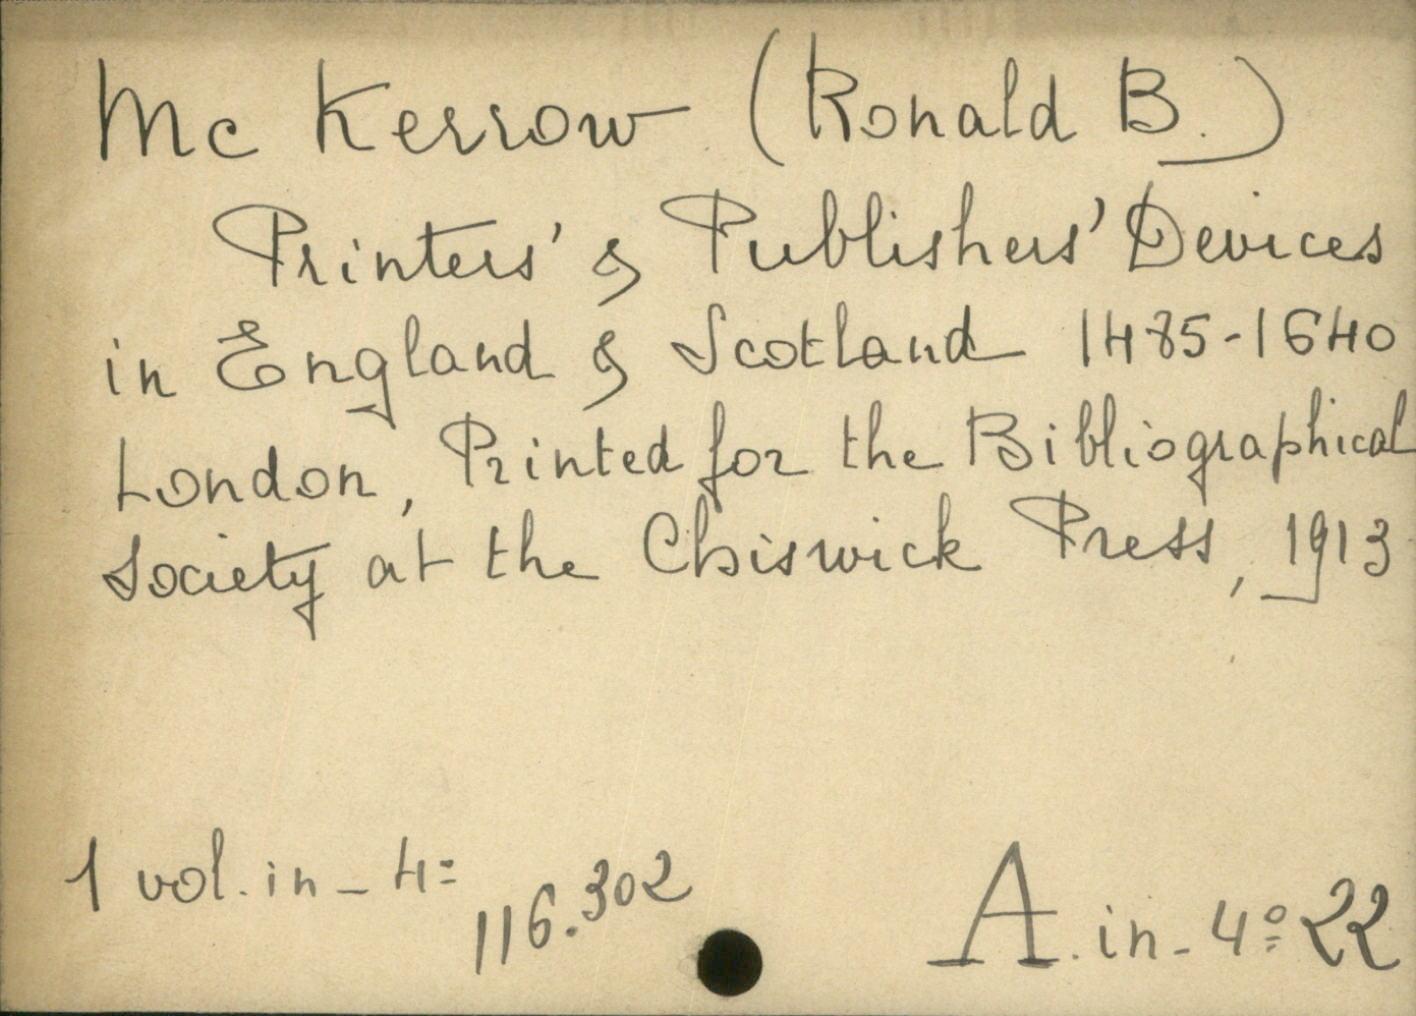 Mc Kerrow (Ronald B.)
Printers' & Publishers' Devices
in England & Scotland 1485-1640
London, Printed for the Bibliographical
Society at the Chiswick Press, 1913
1 vol. in-4º
116.302
A. in-4º 22